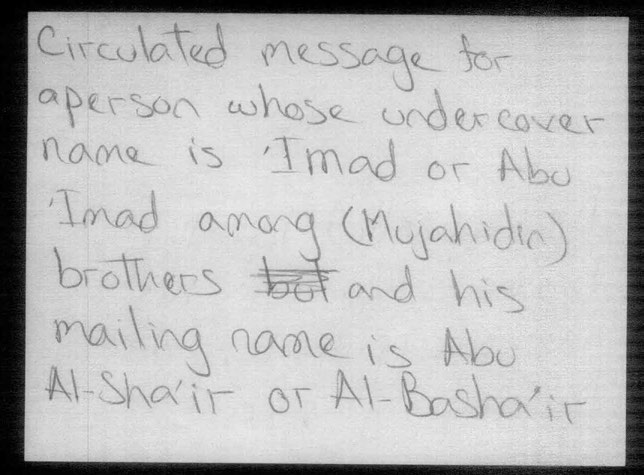 Circulated message for
aperson whose undercover
name is 'Imad or Abu
'Imad among (Mujahidin)
brothers but and his
mailing name is Abu
Al-Sha'ir or Al-Basha'ir